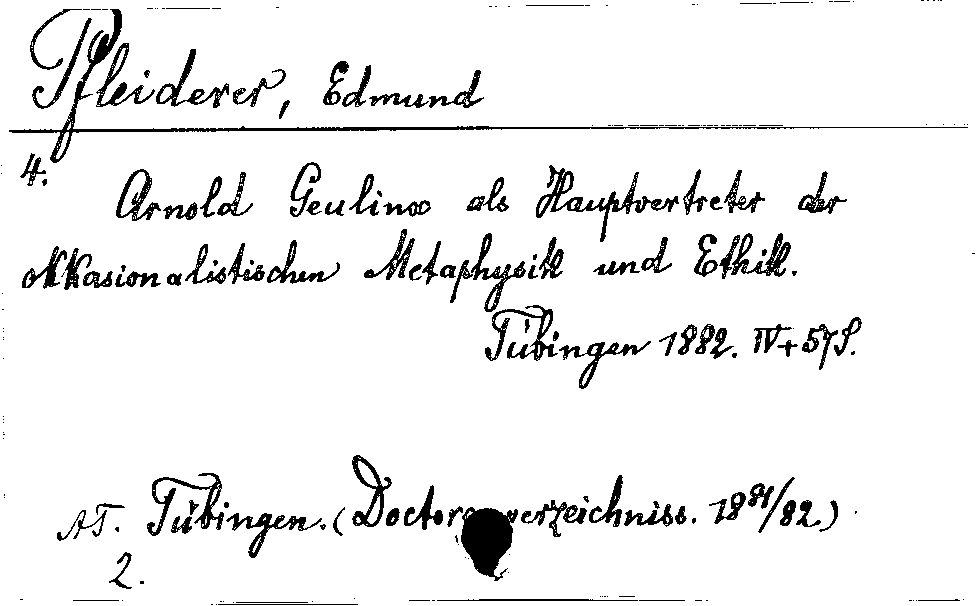 Pfleiderer, Edmund
4.
Arnold Geulincx als Hauptvertreter der
okkasionalistischen Metaphysik und Ethik.
Tübingen 1882. IV+57S.
AT. Tübingen. (Doctorenverzeichniss. 1881/82.)
2.